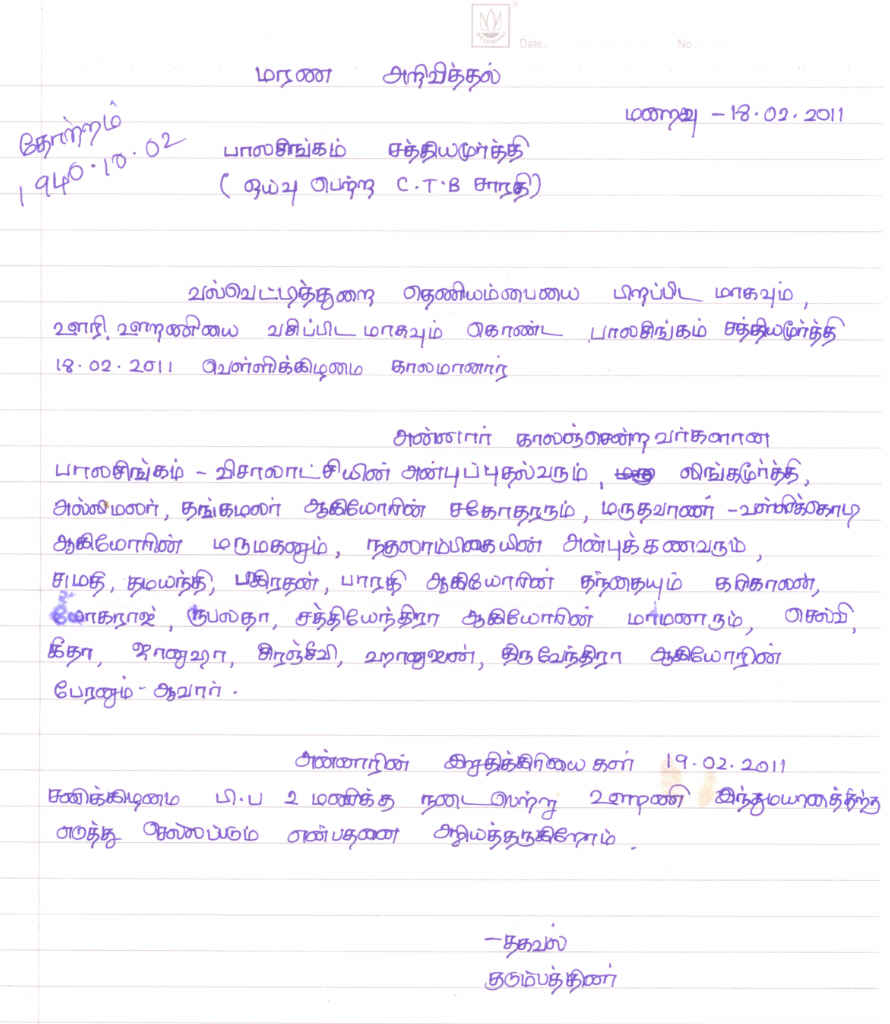 Date. No
மரண அறிவித்தல்
மறைவு - 18.02.2011
தோற்றம்
1940.10.02
பாலசிங்கம் சத்தியமூர்த்தி
( ஓய்வு பெற்ற C.T.B சாரதி)
வல்வெட்டித்துறை தெணியம்பையை பிறப்பிடமாகவும்,
ஊரி, ஊறணியை வசிப்பிடமாகவும் கொண்ட பாலசிங்கம் சத்தியமூர்த்தி
18.02.2011 வெள்ளிக்கிழமை காலமானார்
அன்னார் காலஞ்சென்றவர்களான
பாலசிங்கம் - விசாலாட்சியின் அன்புப்புதல்வரும், லிங்கமூர்த்தி,
அல்லிமலர், தங்கமலர் ஆகியோரின் சகோதரரும், மருதவாணர் - வள்ளிக்கொடி
ஆகியோரின் மருமகனும், நகுலாம்பிகையின் அன்புக்கணவரும்,
சுமதி, தமயந்தி, பகிரதன், பாரதி ஆகியோரின் தந்தையும் கரிகாலன்,
யோகராஜ், ரூபலதா, சத்தியேந்திரா ஆகியோரின் மாமனாரும், செல்வி,
கீதா, ஜானுஷா, சிரஞ்சீவி, ஹானுஜன், திருவேந்திரா ஆகியோரின்
பேரனும் - ஆவார்.
அன்னாரின் இறுதிக்கிரியைகள் 19.02.2011
சனிக்கிழமை பி.ப 2 மணிக்கு நடைபெற்று ஊறணி இந்துமயானத்திற்கு
எடுத்து செல்லப்படும் என்பதனை அறியத்தருகிறோம்.
- தகவல்
குடும்பத்தினர்